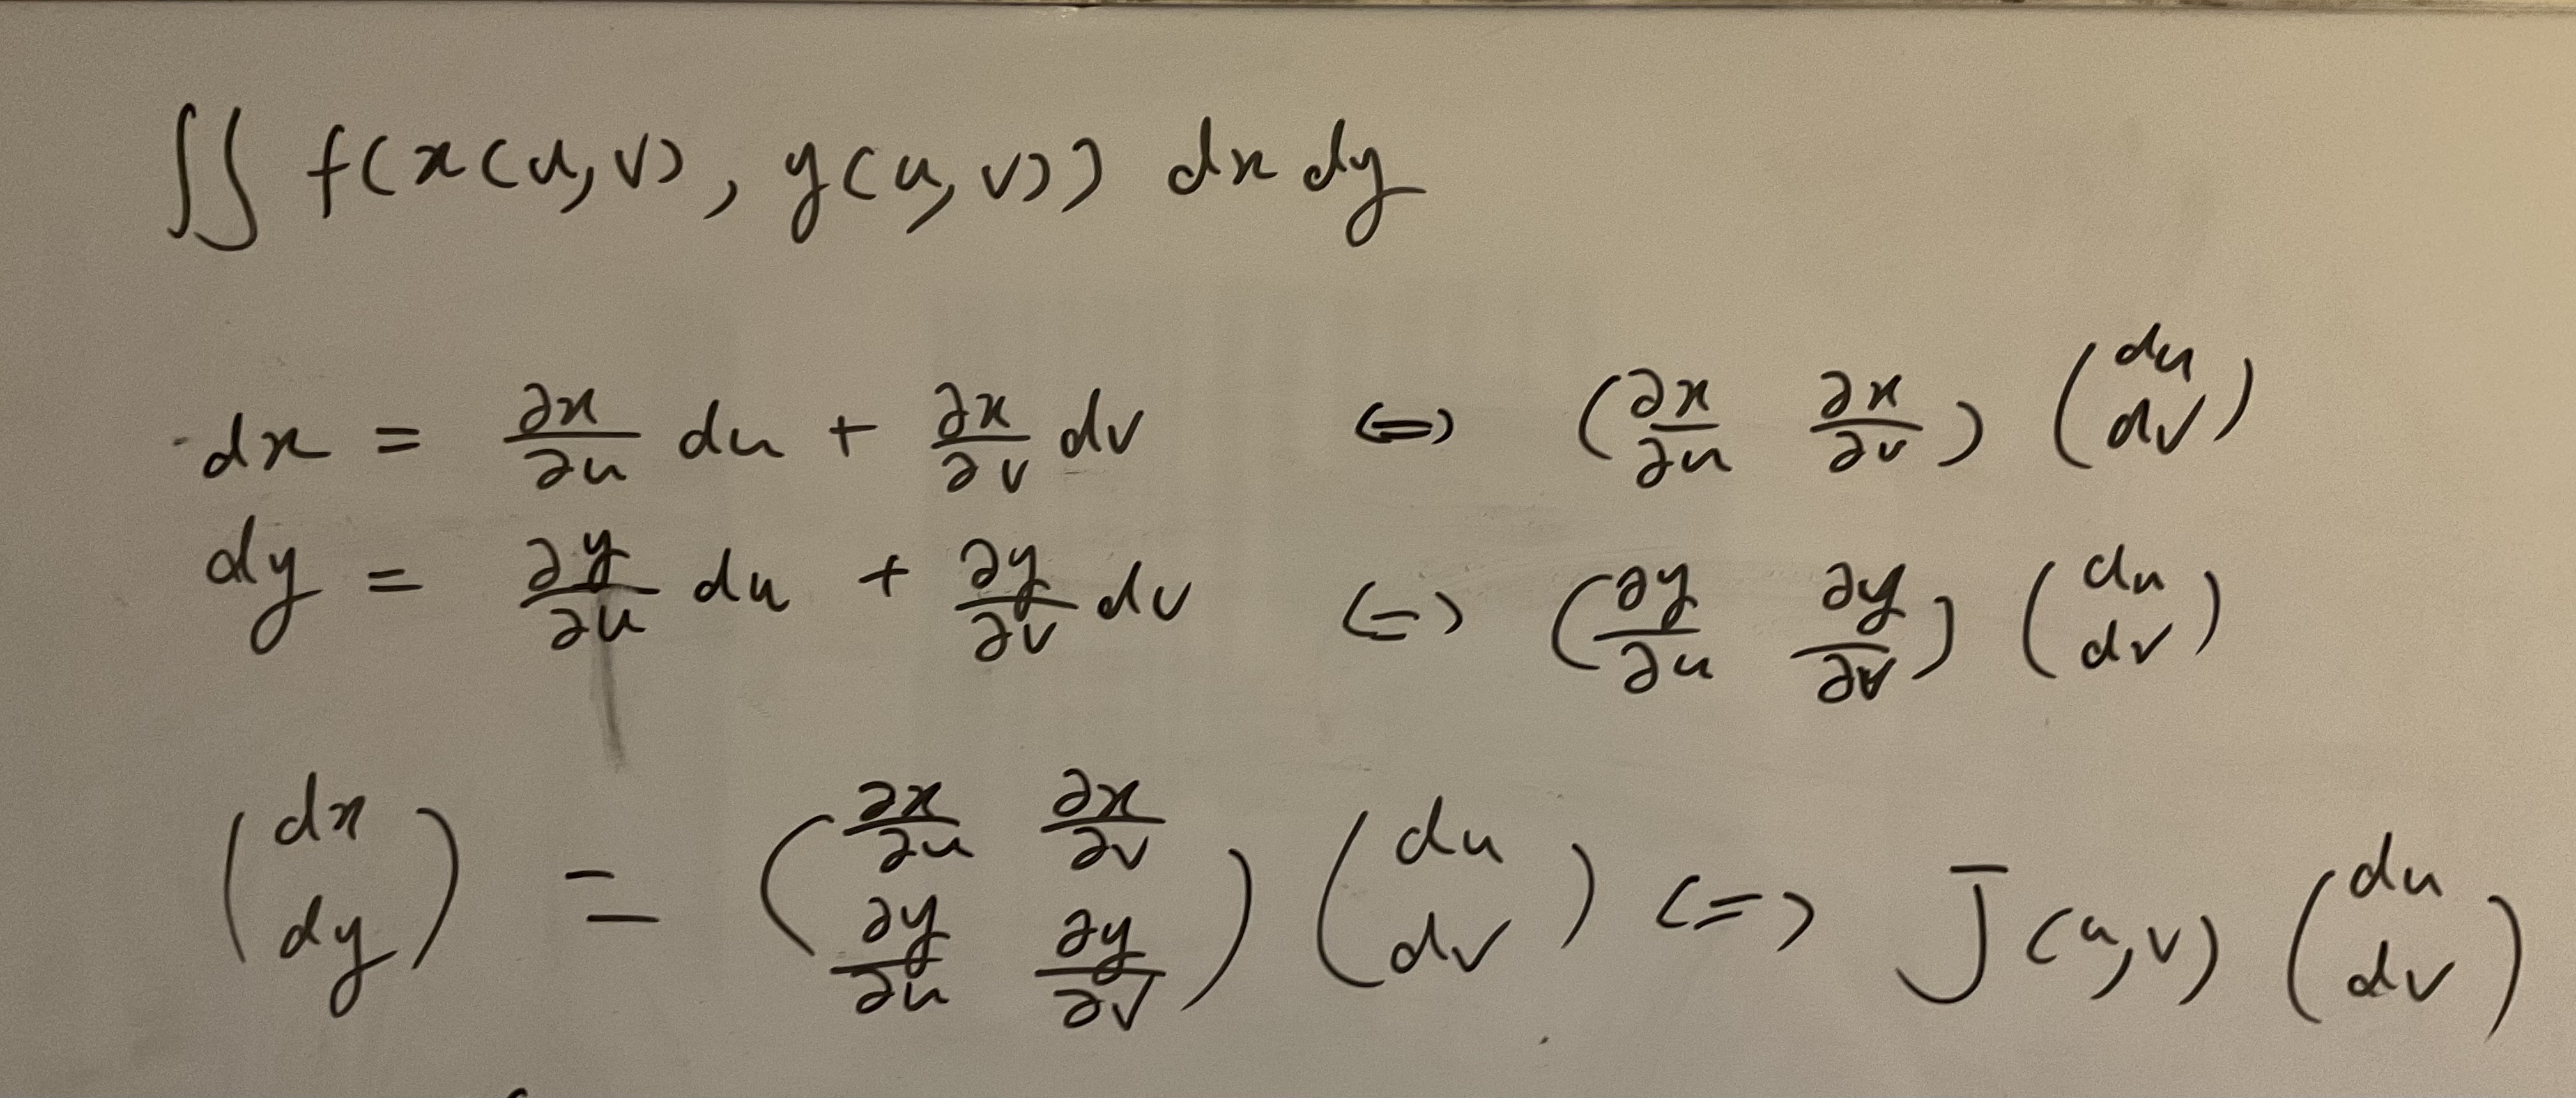 ∬ f(x(u,v), y(u,v)) dx dy
dx = ∂x/∂u du + ∂x/∂v dv <=> (∂x/∂u ∂x/∂v) (du dv)
dy = ∂y/∂u du + ∂y/∂v dv <=> (∂y/∂u ∂y/∂v) (du dv)
(dx dy) = (∂x/∂u ∂x/∂v ∂y/∂u ∂y/∂v) (du dv) <=> J(u,v) (du dv)